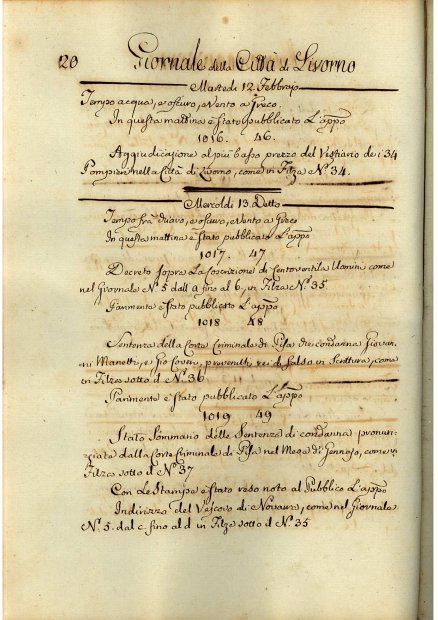 20 Giornale della Città di Livorno
Martedi 12. Febbrajo
Tempo acqua, e oscuro, e vento a Greco.
In questa mattina è stato pubblicato L'appo
1016. 46.
Aggiudicazione al più basso prezzo del Vestiario de i 34
Pompieri nella Città di Livorno, come in Filza N.° 34.
Mercoldi 13. Detto
Tempo frà chiaro, e oscuro, e vento a Greco
In questa mattina è stato pubblicato L'appo
1017. 47
Decreto sopra La Coscrizione di Uomini, come
nel Giornale N.° 5 dall a fino al 6, in Filza N.° 35
Parimente è stato pubblicato L'appo
1018 48
Sentenza della Corte Criminale di Pisa che condanna Giovan
ni Manetti, e Gio rei di falso in Scrittura, come
in Filza sotto d N.° 36
Parimente è stato pubblicato L'appo
1019 49
Stato Sommario delle Sentenze di condanna pronun:
ziate dalla Corte Criminale di Pisa nel Mese di Gennajo, come in
Filza sotto d N.° 37
Con Le Stampe è stato reso noto al Pubblico L'appo
Indirizzo del Vescovo di Novara, come nel Giornale
N.° 5. dal c. fino al d in Filza sotto d N.° 35